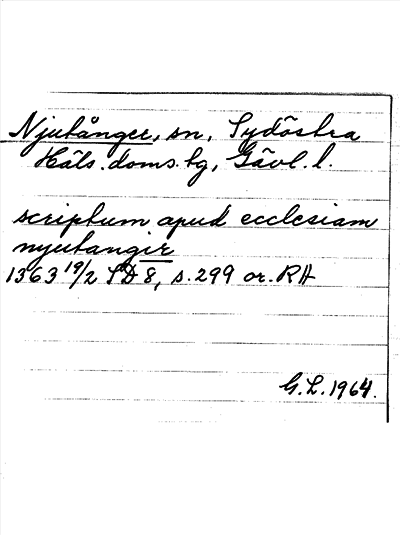 Njutånger, sn, Sydöstra
Häls. doms. tg, Gävl. l.
scriptum apud ecclesiam
nyutangir
1363 19/2 SD 8, s. 299 or. RA
G. L. 1964.